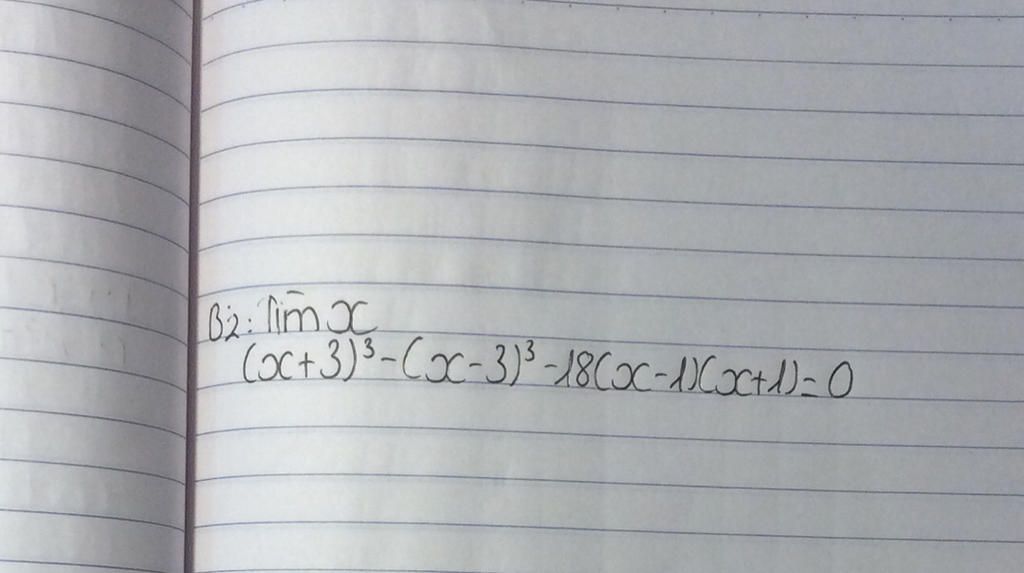 B2: Tìm x
(x+3)³-(x-3)³-18(x-1)(x+1)=0